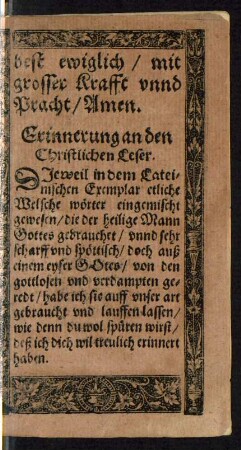 dest ewiglich / mit
grosser Krafft vnnd
Pracht / Amen.
Erinnerung an den
Christlichen Leser.
DJeweil in dem Latei-
nischen Exemplar etliche
Welsche wörter eingemischt
gewesen / die der heilige Mann
Gottes gebrauchet / vnnd sehr
scharff vnd spöttisch / doch auß
einem eyfer GOtes / von den
gottlosen vnd verdampten ge-
redt / habe ich sie auff vnser art
gebraucht vnd lauffen lassen /
wie denn du wol spüren wirst /
deß ich dich wil treulich erinnert
haben.